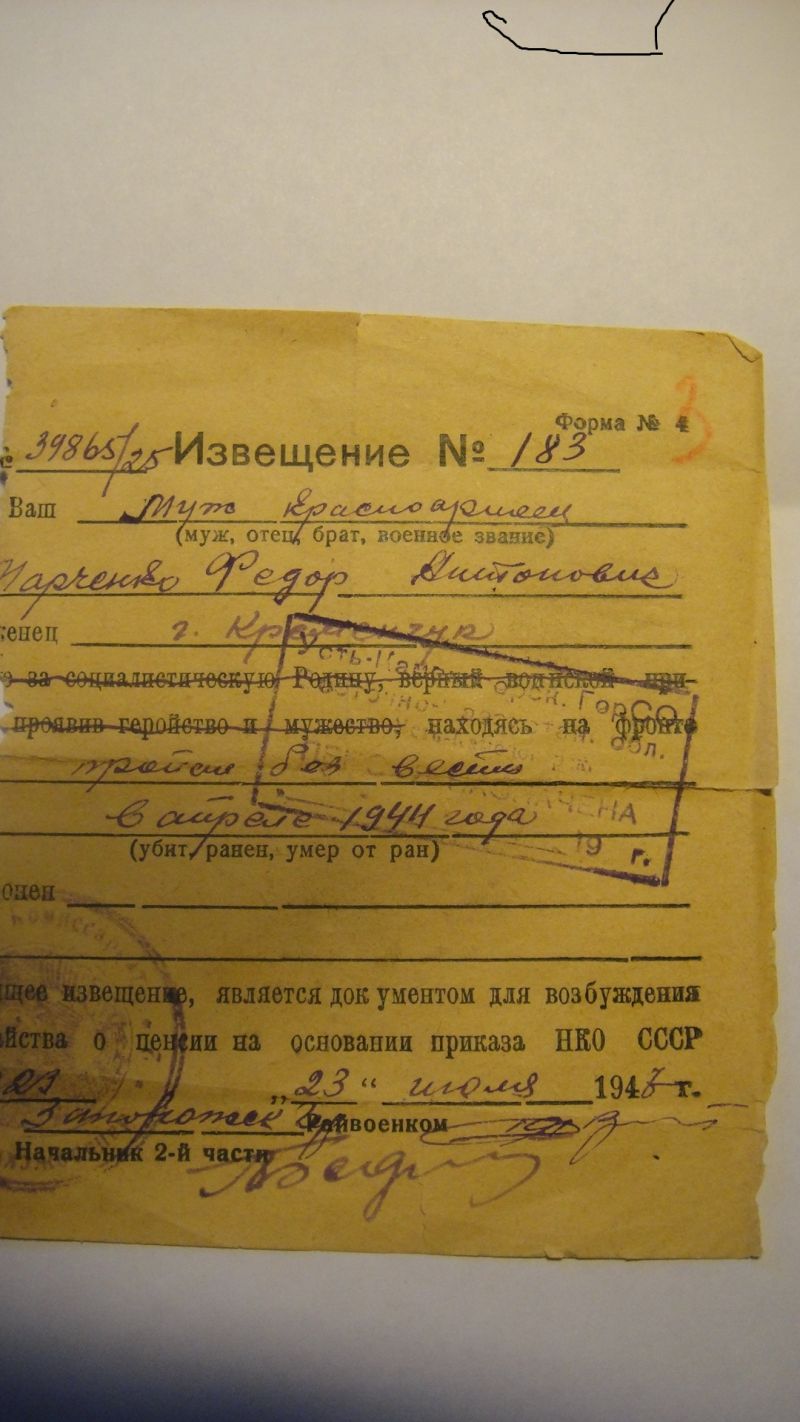 Форма № 4
39865/25 Извещение № 183
Ваш Муж красноармеец
(муж, отец, брат, военное звание)
Марченко Федор Антонович
енец г. Кременчуг
за социалистическую Родину, верный воинской при-
проявив геройство и мужество, находясь на фронте
пропал без вести
в апреле 1944 года
(убит, ранен, умер от ран)
онен
щее извещение, является документом для возбуждения
йства о пенсии на основании приказа НКО СССР
„23“ июля 194 г.
Райвоенком
Начальник 2-й части
ГорСО
обл.
19 г.